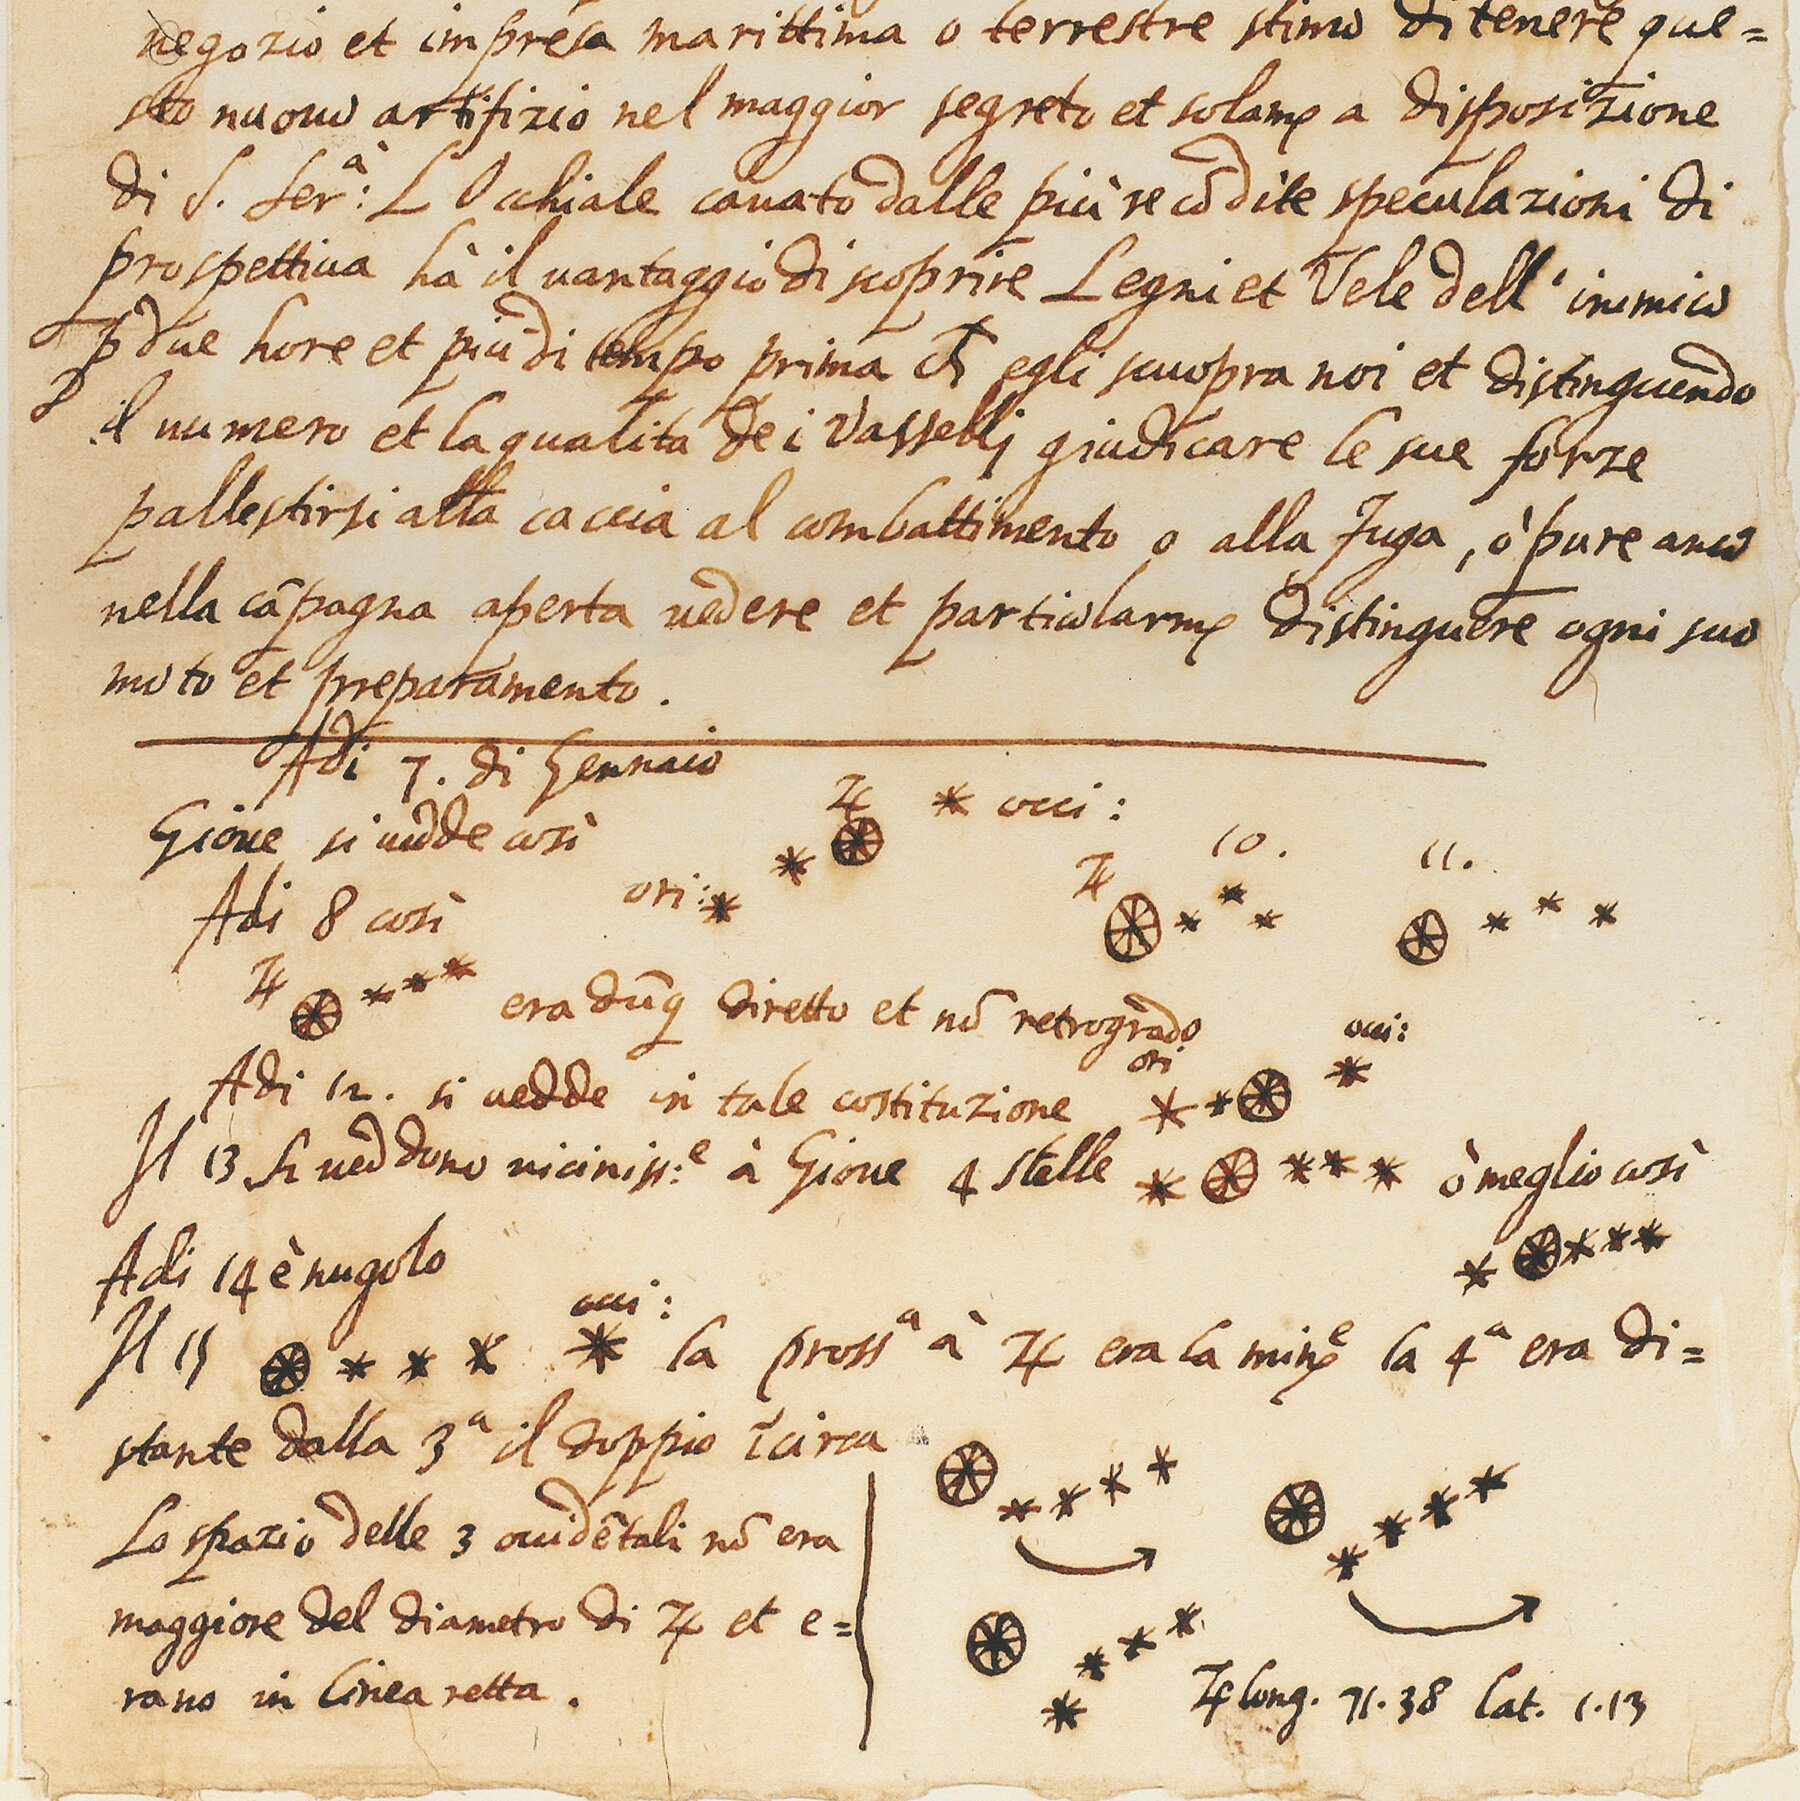 negozio et impresa marittima o terrestre stimo di tenere que=
sto nuouo artifizio nel maggior segreto et solamẽ a disposizione
di S. Ser.ª: L Occhiale cauato dalle più recõdite speculazioni di
prospettiua hà il uantaggio di scoprire Legni et Vele dell' inimico
p due hore et più di tempo prima ch egli scuopra noi et distinguendo
il numero et la qualità de i Vasselli giudicare le sue forze
pallestirsi alla caccia al combattimento o alla fuga, ò pure anco
nella cãpagna aperta uedere et particolarmẽ distinguere ogni suo
moto et preparamento.
Adi 7. di Gennaio
Gioue si uedde così ♃ occi:
ori:
Adi 8 così ♃ 10. 11.
♃ era dũq diretto et nõ retrogrado
Adi 12. si uedde in tale costituzione ori occi:
Il 13 si ueddono uiciniss:e à Gioue 4 stelle ò meglio così
Adi 14 è nugolo
Il 15 occi: la prossª à ♃ era la minẽ la 4ª era di=
stante dalla 3ª il doppio ĩcirca
Lo spazio delle 3 occidẽtali nõ era
maggiore del diametro di ♃ et e=
rano in linea retta.
♃ long. 71.38 lat. 1.13